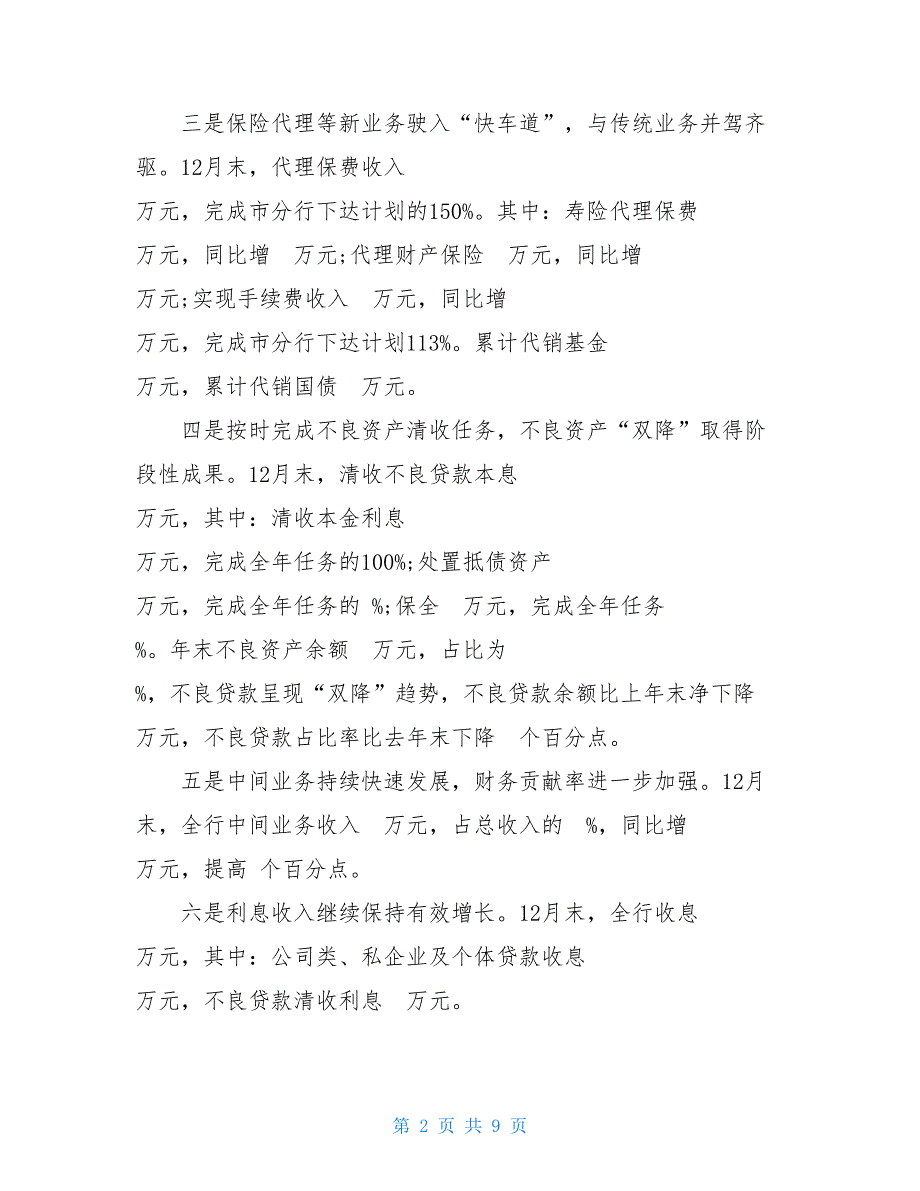 三是保险代理等新业务驶入“快车道”，与传统业务并驾齐
驱。12月末，代理保费收入
万元，完成市分行下达计划的150%。其中：寿险代理保费
万元，同比增　万元;代理财产保险　万元，同比增
万元;实现手续费收入　万元，同比增
万元，完成市分行下达计划113%。累计代销基金
万元，累计代销国债　万元。
四是按时完成不良资产清收任务，不良资产“双降”取得阶
段性成果。12月末，清收不良贷款本息
万元，其中：清收本金利息
万元，完成全年任务的100%;处置抵债资产
万元，完成全年任务的 %;保全　万元，完成全年任务
%。年末不良资产余额　万元，占比为
%，不良贷款呈现“双降”趋势，不良贷款余额比上年末净下降
万元，不良贷款占比率比去年末下降　个百分点。
五是中间业务持续快速发展，财务贡献率进一步加强。12月
末，全行中间业务收入　万元，占总收入的　%，同比增
万元，提高 个百分点。
六是利息收入继续保持有效增长。12月末，全行收息
万元，其中：公司类、私企业及个体贷款收息
万元，不良贷款清收利息　万元。
第 2 页 共 9 页